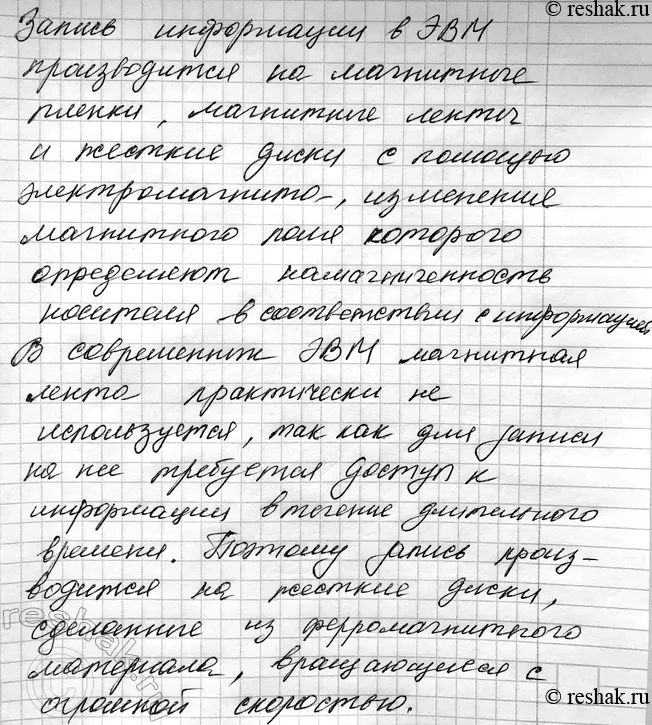 reshak.ru
Запись информации в ЭВМ
производится на магнитные
пленки, магнитные ленты
и жесткие диски с помощью
электромагнита, изменение
магнитного поля которого
определяют намагниченность
носителя в соответствии с информацией
В современных ЭВМ магнитная
лента практически не
используется, так как для записи
на нее требуется доступ к
информации в течение длительного
времени. Поэтому запись произ-
водится на жесткие диски,
сделанные из ферромагнитного
материала, вращающиеся с
огромной скоростью.
reshak.ru
reshak.ru